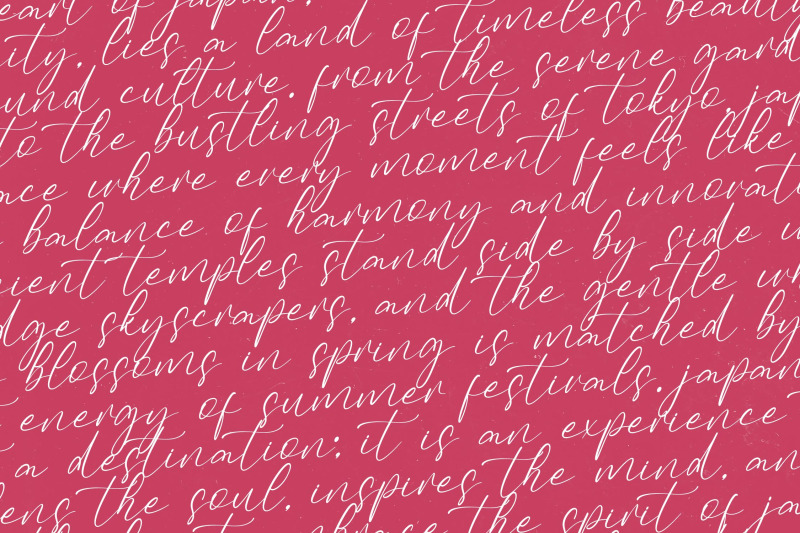 heart of japan.
ity, lies a land of timeless beauty
und culture. from the serene gard
to the bustling streets of tokyo, jap
nce where every moment feels like
balance of harmony and innovati
cient temples stand side by side w
dge skyscrapers, and the gentle wh
blossoms in spring is matched by
energy of summer festivals. japan
a destination; it is an experience
ens the soul, inspires the mind, an
the spirit of ja